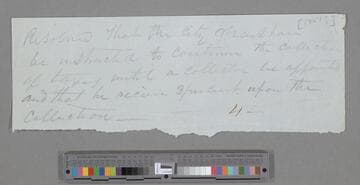 [185?]
Resolved That the City Marshall
be instructed to continue the collection
of taxes until a collector be appointed
and that he receive 3 pr cent upon the
collection —— 4 —